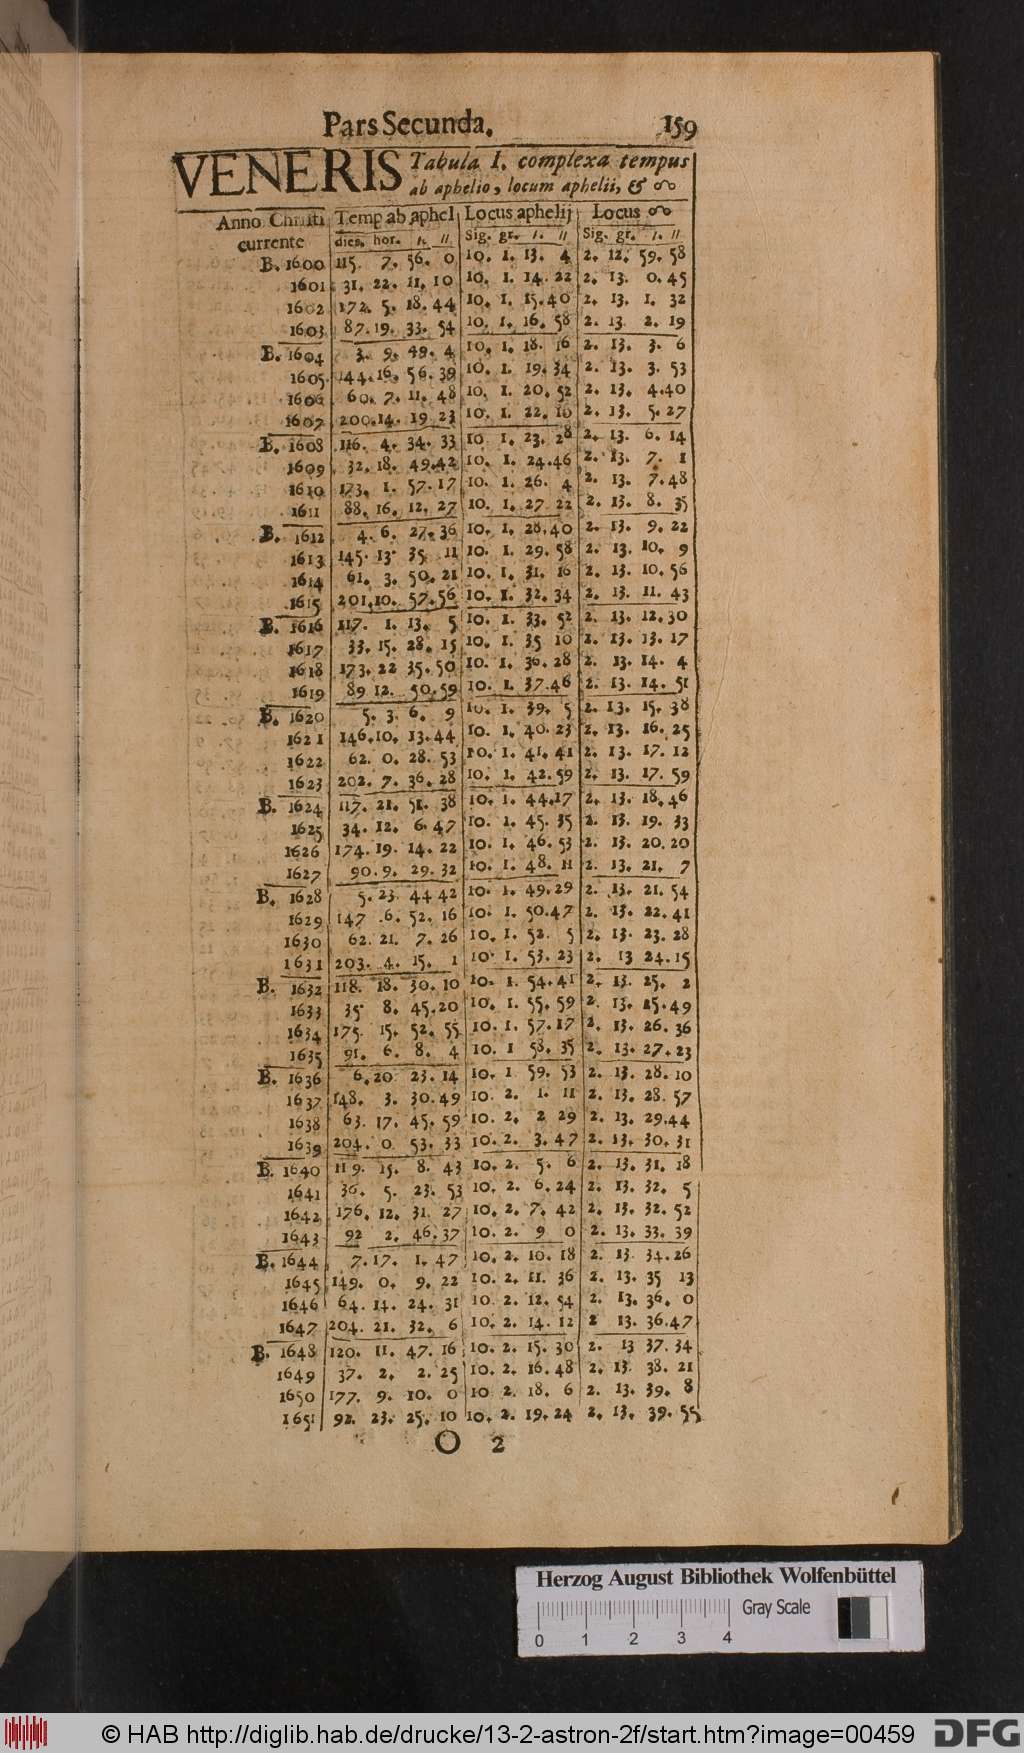 Pars Secunda. 159
VENERIS Tabula I. complexa tempus
ab aphelio, locum aphelii, & ☊
Anno Christi | Temp ab aphel | Locus aphelij | Locus ☊
currente | dies. hor. ı. ıı | Sig. gr. ı. ıı | Sig. gr. ı. ıı
B. 1600 | 115. 7. 56. 0 | 10. 1. 13. 4 | 2. 12. 59. 58
1601 | 31. 22. 11. 10 | 10. 1. 14. 22 | 2. 13. 0. 45
1602 | 172. 5. 18. 44 | 10. 1. 15.40 | 2. 13. 1. 32
1603 | 87.19. 33. 54 | 10. 1. 16. 58 | 2. 13. 2. 19
B. 1604 | 3. 9. 49. 4 | 10. 1. 18. 16 | 2. 13. 3. 6
1605 | 144.16. 56.39 | 10. 1. 19. 34 | 2. 13. 3. 53
1606 | 60. 7. 11. 48 | 10. 1. 20. 52 | 2. 13. 4.40
1607 | 200.14. 19 23 | 10. 1. 22. 10 | 2. 13. 5. 27
B. 1608 | 116. 4. 34. 33 | 10 1. 23. 28 | 2. 13. 6. 14
1609 | 32. 18. 49.42 | 10. 1. 24.46 | 2. 13. 7. 1
1610 | 173. 1. 57.17 | 10. 1. 26. 4 | 2. 13. 7.48
1611 | 88. 16. 12. 27 | 10. 1. 27 22 | 2. 13. 8. 35
B. 1612 | 4. 6. 27. 36 | 10. 1. 28.40 | 2. 13. 9. 22
1613 | 145. 13. 35 11 | 10. 1. 29. 58 | 2. 13. 10. 9
1614 | 61. 3. 50. 21 | 10. 1. 31. 16 | 2. 13. 10. 56
1615 | 201.10. 57.56 | 10. 1. 32. 34 | 2. 13. 11. 43
B. 1616 | 117. 1. 13. 5 | 10. 1. 33. 52 | 2. 13. 12. 30
1617 | 33. 15. 28. 15 | 10. 1. 35 10 | 2. 13. 13. 17
1618 | 173. 22 35. 50 | 10. 1. 36. 28 | 2. 13. 14. 4
1619 | 89 12. 50.59 | 10. 1. 37.46 | 2. 13. 14. 51
B. 1620 | 5. 3. 6. 9 | 10. 1. 39. 5 | 2. 13. 15. 38
1621 | 146.10. 13.44 | 10. 1. 40. 23 | 2. 13. 16. 25
1622 | 62. 0. 28. 53 | 10. 1. 41. 41 | 2. 13. 17. 12
1623 | 202. 7. 36. 28 | 10. 1. 42.59 | 2. 13. 17. 59
B. 1624 | 117. 21. 51. 38 | 10. 1. 44.17 | 2. 13. 18.46
1625 | 34. 12. 6.47 | 10. 1. 45. 35 | 2. 13. 19. 33
1626 | 174. 19. 14. 22 | 10. 1. 46. 53 | 2. 13. 20. 20
1627 | 90. 9. 29. 32 | 10. 1. 48. 11 | 2. 13. 21. 7
B. 1628 | 5. 23. 44 42 | 10. 1. 49.29 | 2. 13. 21. 54
1629 | 147 .6. 52. 16 | 10. 1. 50.47 | 2. 13. 22.41
1630 | 62. 21. 7. 26 | 10. 1. 52. 5 | 2. 13. 23. 28
1631 | 203. 4. 15. 1 | 10. 1. 53. 23 | 2. 13 24.15
B. 1632 | 118. 18. 30. 10 | 10. 1. 54.41 | 2. 13. 25. 2
1633 | 35. 8. 45.20 | 10. 1. 55. 59 | 2. 13. 25.49
1634 | 175. 15. 52. 55 | 10. 1. 57.17 | 2. 13. 26. 36
1635 | 91. 6. 8. 4 | 10. 1 58. 35 | 2. 13. 27. 23
B. 1636 | 6.20 23. 14 | 10. 1 59. 53 | 2. 13. 28. 10
1637 | 148. 3. 30.49 | 10. 2. 1. 11 | 2. 13. 28. 57
1638 | 63. 17. 45. 59 | 10. 2. 2 29 | 2. 13. 29.44
1639 | 204. 0 53. 33 | 10. 2. 3. 47 | 2. 13. 30. 31
B. 1640 | 119. 15. 8. 43 | 10. 2. 5. 6 | 2. 13. 31. 18
1641 | 36. 5. 23. 53 | 10. 2. 6.24 | 2. 13. 32. 5
1642 | 176. 12. 31. 27 | 10. 2. 7. 42 | 2. 13. 32. 52
1643 | 92 2. 46.37 | 10. 2. 9 0 | 2. 13. 33. 39
B. 1644 | 7.17. 1. 47 | 10. 2. 10. 18 | 2. 13 34.26
1645 | 149. 0. 9. 22 | 10. 2. 11. 36 | 2. 13. 35 13
1646 | 64. 14. 24. 31 | 10. 2. 12. 54 | 2. 13. 36. 0
1647 | 204. 21. 32. 6 | 10. 2. 14. 12 | 2 13. 36.47
B. 1648 | 120. 11. 47. 16 | 10. 2. 15. 30 | 2. 13 37. 34
1649 | 37. 2. 2. 25 | 10. 2. 16. 48 | 2. 13. 38. 21
1650 | 177. 9. 10. 0 | 10 2. 18. 6 | 2. 13. 39. 8
1651 | 92. 23. 25. 10 | 10. 2. 19. 24 | 2. 13. 39. 55
O 2
Herzog August Bibliothek Wolfenbüttel
Gray Scale
0 1 2 3 4
© HAB http://diglib.hab.de/drucke/13-2-astron-2f/start.htm?image=00459 DFG